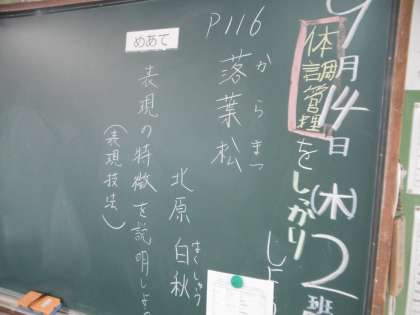 9月14日(木)2班
体調管理をしっかり
しよう
P116
からまつ
落葉松
北原 白秋
はくしゅう
めあて
表現の特徴を説明しよう
(表現技法)